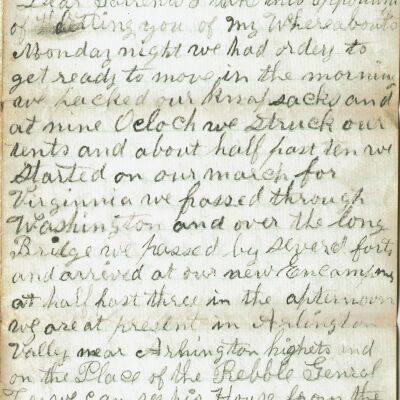 Dear Lorrence I take this oppertun
of letting you of my Whereabouts
Monday night we had orders to
get ready to move in the morning
we packed our Knap sacks and
at nine Ocloch we struck our
tents and about half past ten we
Started on our march for
Virginnia we passed through
Washington and over the long
Bridge we passed by several forts
and arrived at our new Encampmn
at half past three in the afternoon
we are at present in Arlington
Valley near Arhington highets and
on the Place of the Rebble Genral
Lee we can see his House from the